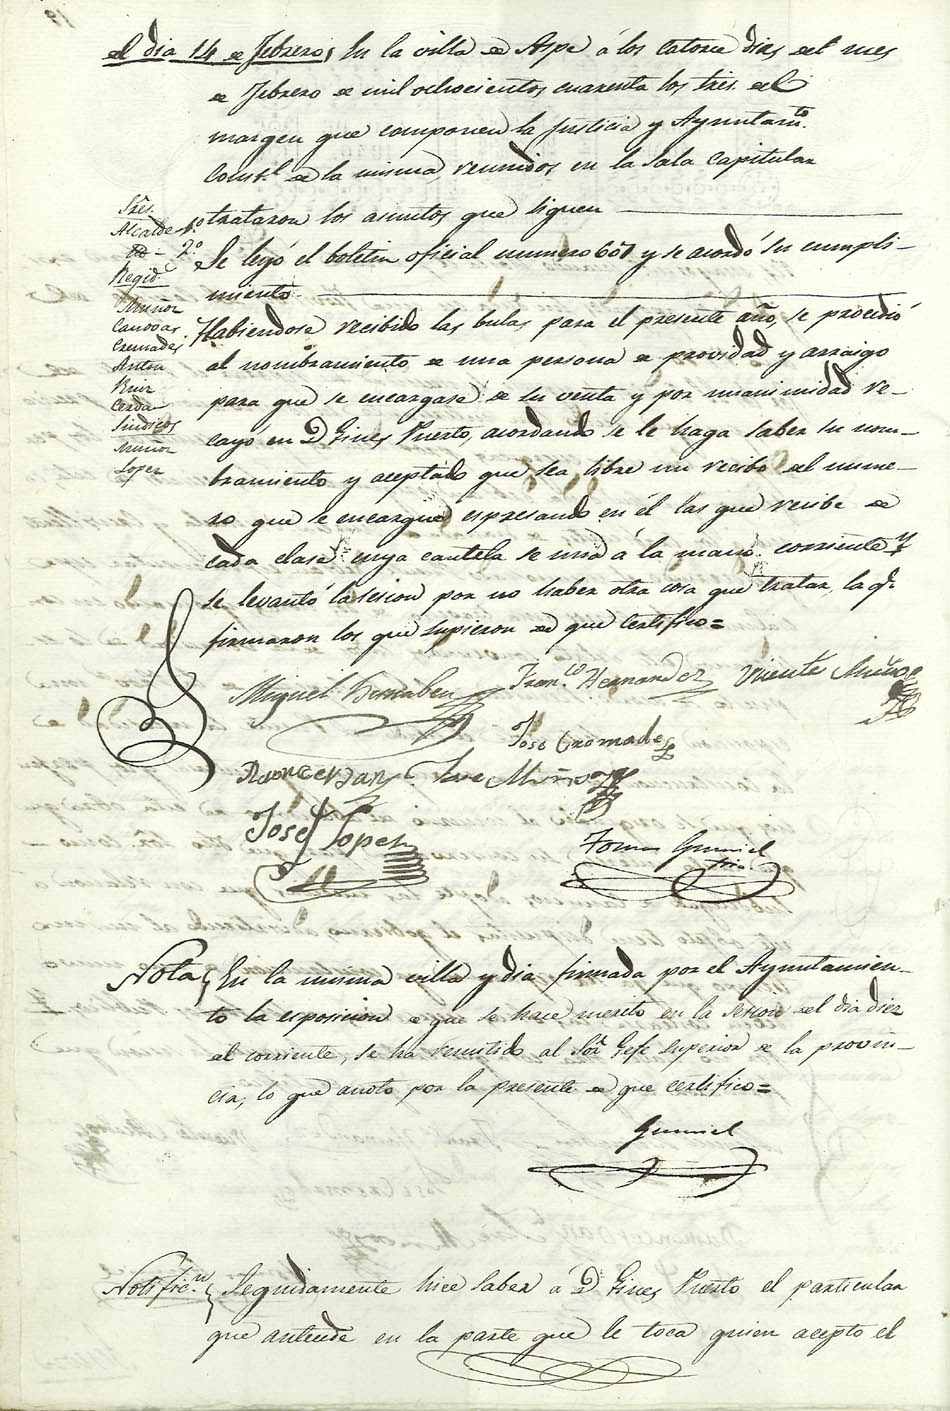 el dia 14 de Febrero, En la villa de Aspe á los catorce dias del mes
de Febrero de mil ochocientos cuarenta los Sres. del
margen que componen la Justicia y Ayuntam.to
Const.l de la misma, reunidos en la Sala Capitular
trataron los asuntos que siguen
Se leyó el boletin oficial numero 601 y se acordó su cumpli-
miento.
Habiendose recibido las bulas para el presente año, se procedió
al nombramiento de una persona de providad y arraigo
para que se encargase de su venta y por unanimidad re-
cayó en D Gines Puerto, acordando se le haga saber su nom-
bramiento y aceptado que sea libre un recibo del nume-
ro que se encargue espresando en él las que recibe de
cada clase cuya cautela se una á la mano corriente y
se levantó la sesion por no haber otra cosa que tratar, la q.e
firmaron los que supieron de que certifico=
Sres.
Alcalde 1.o
2.o
Regid.s
Muñoz
Canovas
Cremades
Anton
Ruiz
Cerdá
Sindicos
Muñoz
Lopez
Miguel Fran.co Hernandez Vicente Muñoz
José Cremades
Jose Muñoz
José Lopez
Tomas Gumiel
Srio.
Nota, En la misma villa y dia firmada por el Ayuntamien-
to la esposicion de que se hace merito en la Sesion del dia diez
el corriente, se ha remitido al Sor. Gefe Superior de la provin-
cia, lo que anoto por la presente de que certifico=
Gumiel
Notific.n Seguidamente hice saber á D Gines Puerto el particular
que antecede en la parte que le toca quien acepto el